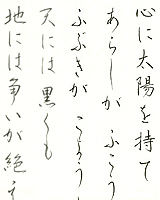 心に太陽を持て
あらしが ふこう
ふぶきが こよう
天には黒くも
地には争いが絶え